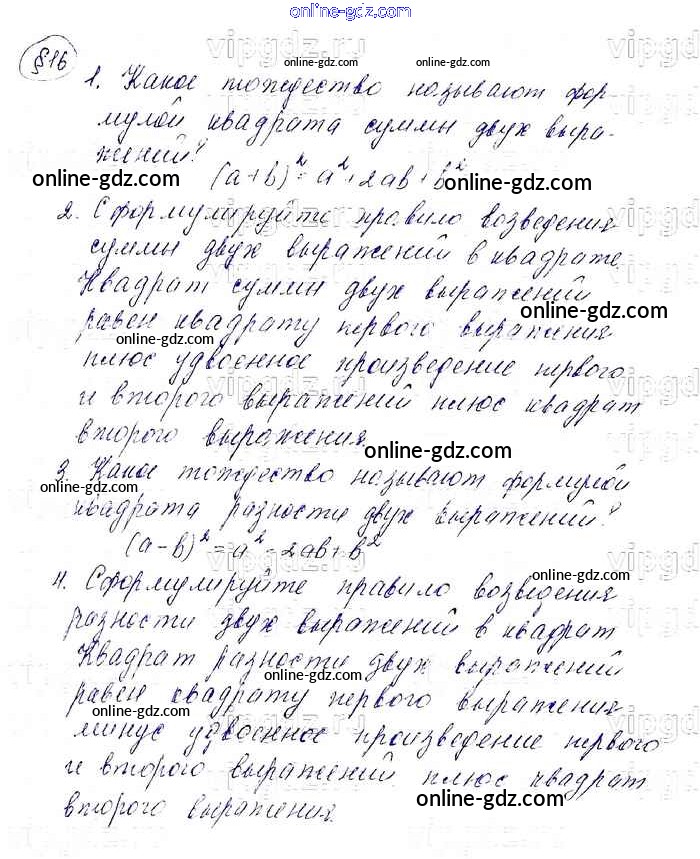 online-gdz.com
vipgdz.ru
§16
1. Какое тождество называют фор-
мулой квадрата суммы двух выра-
жений?
(a+b)²=a²+2ab+b²
online-gdz.com
online-gdz.com
2. Сформулируйте правило возведения
суммы двух выражений в квадрате.
online-gdz.com
Квадрат суммы двух выражений
online-gdz.com
равен квадрату первого выражения
online-gdz.com
плюс удвоенное произведение первого
и второго выражений плюс квадрат
второго выражения
online-gdz.com
3. Какое тождество называют формулой
online-gdz.com
квадрата разности двух выражений?
online-gdz.com
(a-b)²=a²-2ab+b²
4. Сформулируйте правило возведения
online-gdz.com
разности двух выражений в квадрат
Квадрат разности двух выражений
online-gdz.com
равен квадрату первого выражения
online-gdz.com
vipgdz.ru
минус удвоенное произведение первого
online-gdz.com
и второго выражений плюс квадрат
online-gdz.com
второго выражения.